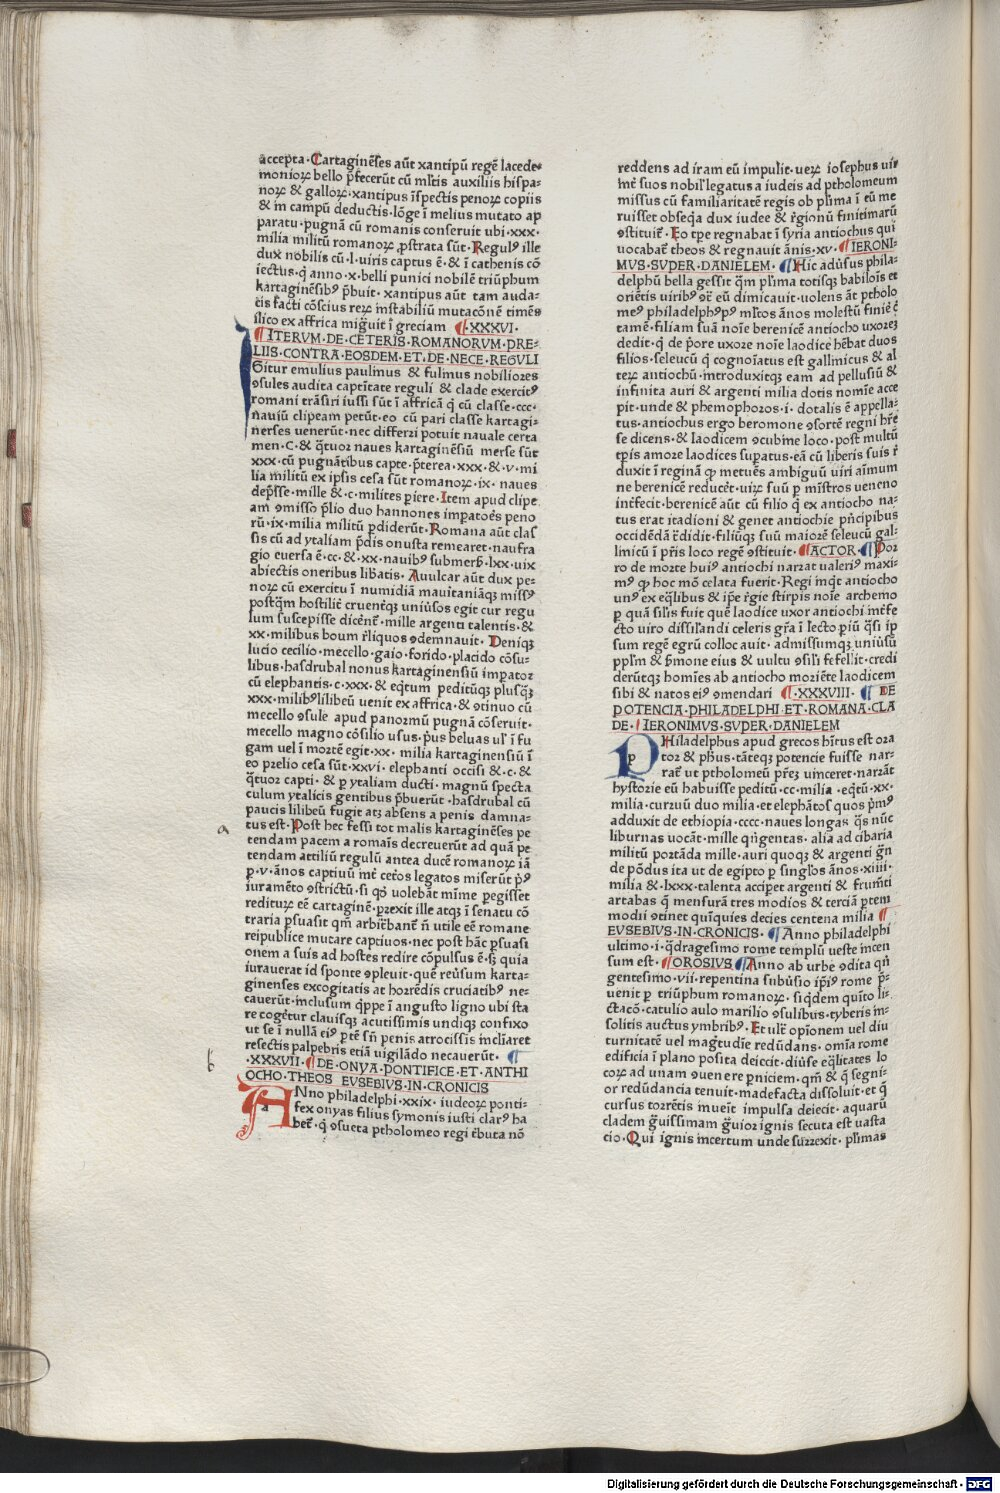 accepta·Cartaginēses aūt xantipū regē lacede⸗
monioꝝ bello p̄fecerūt cū ml̄tis auxiliis hispa⸗
noꝝ & galloꝝ·xantipus īspectis penoꝝ copiis
& in campū deductis·lōge ī melius mutato ap
paratu·pugnā cū romanis conseruit ubi·xxx·
milia militū romanoꝝ ꝓstrata sūt·Regulꝰ ille
dux nobilis cū·l·uiris captus ē·& ī cathenis cō
iectus·q̄ anno·x·belli punici nobilē triūphum
kartaginēsibꝰ p̄buit·xantipus aūt tam auda⸗
cis facti cōscius reꝝ īnstabiliū mutacōnē timēs
ilico ex affrica mig̃uit ī greciam ¶·XXXVI·
¶ITERVM·DE·CETERIS·ROMANORVM·PRE⸗
LIIS·CONTRA·EOSDEM·ET·DE·NECE·REGVLI
Gitur emulius paulinus & fulmus nobiliores
ꝯsules audita captītate reguli & clade exercitꝰ
romani trāsiri iussi sūt ī affricā q̄ cū classe·ccc·
nauiū clipeam petūt·eo cū pari classe kartagi⸗
nerses uenerūt·nec differri potuit nauale certa
men·C·& q̄tuor naues kartaginēsiū merse sūt
xxx·cū pugnātibus capte·p̄terea·xxx·&·v·mi
lia militū ex ipsis cesa sūt romanoꝝ·ix·naues
dep̄sse·mille &·c·milites ꝑiere·Item apud clipe
am ꝯmisso p̄lio duo hannones impatoēs peno
rū·ix·milia militū ꝑdiderūt·Romana aūt clas
sis cū ad ytaliam p̄dis onusta remearet·naufra
gio euersa ē·cc·&·xx·nauibꝰ submerß·lxx·uix
abiectis oneribus lib̄atis· Auulcar aūt dux pe⸗
noꝝ cū exercitu ī numidiā mauitaniāqꝫ missꝰ
postq̄m hostilit̄ cruentqꝫ uniūsos egit cur regu
lum suscepisse dicēnt̄·mille argenti talentis·&
xx·milibus boum r̄liquos ꝯdemnauit· Deniqꝫ
lucio cecilio·mecello·gaio·forido·placido cōsu⸗
libus·hasdrubal nonus kartaginensiū impator
cū elephantis·c·xxx·& eq̄tum peditūqꝫ plusq̄ꝫ
xxx·milibꝰlilibeū uenit ex affrica·& ꝯtinuo cū
mecello ꝯsule apud panormū pugnā cōseruit·
mecello magno cōsilio usus·p̄us beluas ul̄ ī fu
gam uel ī mortē egit·xx· milia kartaginensiū ī
eo prelio cesa sūt·xxvi·elephanti occisi &·c·&
q̄tuor capti·& ꝑ ytaliam ducti·magnū specta
culum ytalicis gentibus p̄buerūt·hasdrubal cū
paucis lilibeū fugit atꝫ absens a penis damna⸗
tus est·Post hec fessi tot malis kartaginēses pe
tendam pacem a romaīs decreuerūt ad quā pe
tendam attiliū regulū antea ducē romanoꝝ iā
ꝑ·v·ānos captiuū īnt̄ cet̄os legatos miserūt p̄ꝰ
iuramēto ꝯstrictū·si qꝰ uolebāt mīme ꝑegisset
redituꝝ eē cartaginē·ꝑrexit ille atqꝫ ī senatu cō
traria ꝑsuasit qm̄ arbitbant̄ n̄ utile eē romane
reipublice mutare captiuos·nec post hāc ꝑsuasi
onem a suis ad hostes redire cōpulsus ē·sꝫ quia
iurauerat id sponte ꝯpleuit·quē reūsum karta⸗
ginenses excogitatis at horrēdis cruciatibꝰ ne⸗
cauerūt·inclusum q̄ppe ī angusto ligno ubi sta
re coget̄ur clauisqꝫ acutissimis undiqꝫ confixo
ut se ī nullā eiꝰ ꝑtē sn̄ penis atrocissis inclīaret
resectis palpebris etiā uigilādo necauerūt· ¶
·XXXVII·¶DE·ONYA·PONTIFICE·ET·ANTHI
OCHO·THEOS EVSEBIVS·IN·CRONICIS
ANno philadelphi·xxix·iudeoꝝ ponti⸗
fex onyas filius symonis iusti clarꝰ ha
bet̄·q̄ ꝯsueta ptholomeo regi t̄buta nō
a
b
reddens ad iram eū impulit·ueꝝ iosephus uir
īnt̄ suos nobil̄ legatus a iudeis ad ptholomeum
missus cū familiaritatē regis ob pl̄ima ī eū me
ruisset obseq̄a dux iudee & r̄gionū finitimarū
ꝯstituit̄·Eo tp̄e regnabat ī syria antiochus qui
uocabat̄ theos & regnauit ānis·xv·¶IERONI⸗
MVS·SVPER·DANIELEM·¶Hic adūsus phila⸗
delphū bella gessit q̄m pl̄ima totisqꝫ babiloīs et
oriētis uiribꝰ ōē eū dimicauit·uolens āt ptholo
meꝰ philadelphꝰpꝰ ml̄tos ānos molestū finiē ē
tamē·filiam suā noīe berenicē antiocho uxorē
dedit·q̄ de p̄ore uxore noīe laodice hēbat duos
filios·seleucū q̄ cognoīatus est gallinicus & al
teꝝ antiochū·introduxitqꝫ eam ad pellusiū &
infinita auri & argenti milia dotis nomīe acce
pit·unde & phemophoros·i·dotalis ē appella⸗
tus·antiochus ergo beromone ꝯsortē regni hr̄e
se dicens·& laodicem ꝯcubīe loco·post multū
tp̄is amore laodices supatus·eā cū liberis suis r̄
duxit ī reginā qꝫ metuēs ambiguū uiri aīmum
ne berenicē reducet̄·uiꝝ suū ꝑ mīstros ueneno
int̄fecit·berenicē aūt cū filio q̄ ex antiocho na⸗
tus erat itadioni & genet antiochie p̄ncipibus
occidēdā t̄didit·filiūqꝫ suū maiorē seleucū gal⸗
linicū ī pr̄is loco regē ꝯstituit·¶ACTOR·¶Por
ro de morte huiꝰ antiochi narrat ualeriꝰ maxi⸗
mꝰ qꝫ hoc mō celata fuerit·Regi inq̄t antiocho
unꝰ ex eq̄libus & ip̄e r̄gie stirpis noīe archemo
ꝑ quā sil̄is fuit quē laodice uxor antiochi int̄fe
cto uiro dissil̄andi celeris gr̄a ī lecto ꝑiū q̄si ip̄
sum regē egrū collocauit·admissumqꝫ uniūsū
ppl̄m & p̄mone eius & uultu ꝯsil̄i fefellit·credi
derūtqꝫ homīes ab antiocho moriēte laodicem
sibi & natos eiꝰ ꝯmendari ¶·XXXVIII·¶DE
POTENCIA·PHILADELPHI·ET·ROMANA·CLA
DE·IERONIMVS·SVPER·DANIELEM
PHiladelphus apud grecos hītus est ora
tor & phūs·tāteqꝫ potencie fuisse nar⸗
rat̄ ut ptholomeū prēꝫ uinceret·narrāt
hystorie eū habuisse peditū·cc·milia·eq̄tū·xx·
milia·curruū duo milia·et elephātos quos p̄mꝰ
adduxit de ethiopia·cccc·naues longas q̄s nūc
liburnas uocāt·mille qn̄gentas·alia ad cibaria
militū portāda mille·auri quoqꝫ & argenti g̃n
de pōdus ita ut de egipto ꝑ singl̄os ānos·xiiii·
milia &·lxxx·talenta accip̄et argenti & frum̄ti
artabas q̄ mensurā tres modios & terciā ꝑtem
modii ꝯtinet quīquies decies centena milia ¶
EVSEBIVS·IN·CRONICIS·¶Anno philadelphi
ultimo·i·q̄dragesimo rome templū ueste incen
sum est·¶OROSIVS ¶Anno ab urbe ꝯdita qn̄
gentesimo·vii·repentina subūsio ip̄iꝰ rome p̄⸗
uenit ꝑ triūphum romanoꝝ·siq̄dem quīto li⸗
ctacō·catulio aulo marilio ꝯsulibus·tyberis in⸗
solitis auctus ymbribꝰ·Et ult̄ opīonem uel diu
turnitatē uel mag̃tudīe redūdans·omīa rome
edificia ī plano posita deiecit·diūse eq̄litates lo
coꝝ ad unam ꝯuenere ꝑniciem·qm̄ & q̄ segni⸗
or redūdancia tenuit·madefacta dissoluit·et q̄
cursus torrētis mueīt impulsa deiecit·aquarū
cladem g̃uissimam g̃uior ignis secuta est uasta
cio·Qui ignis incertum unde surrexit·pl̄imas
Digitalisierung gefördert durch die Deutsche Forschungsgemeinschaft · DFG